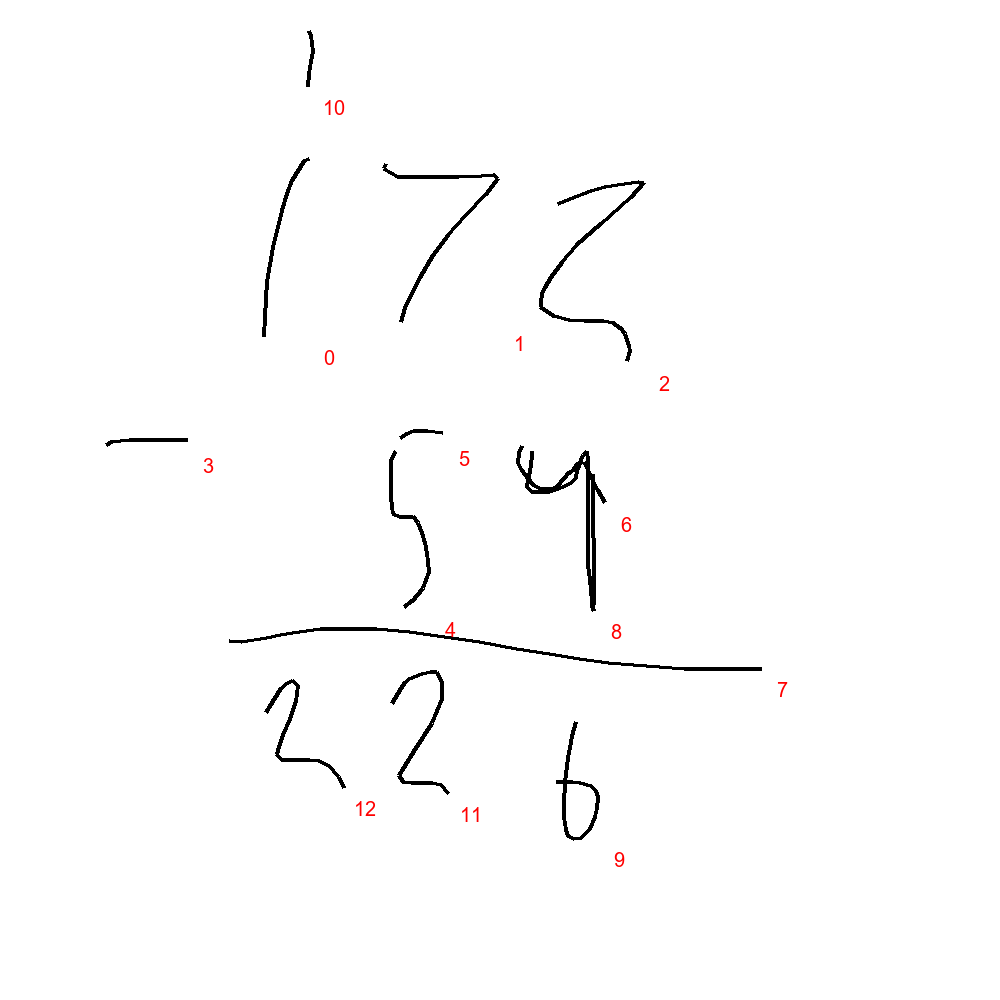 1
10
172
0 1 2
- 54
3 5 6
4 8
7
226
12 11 9